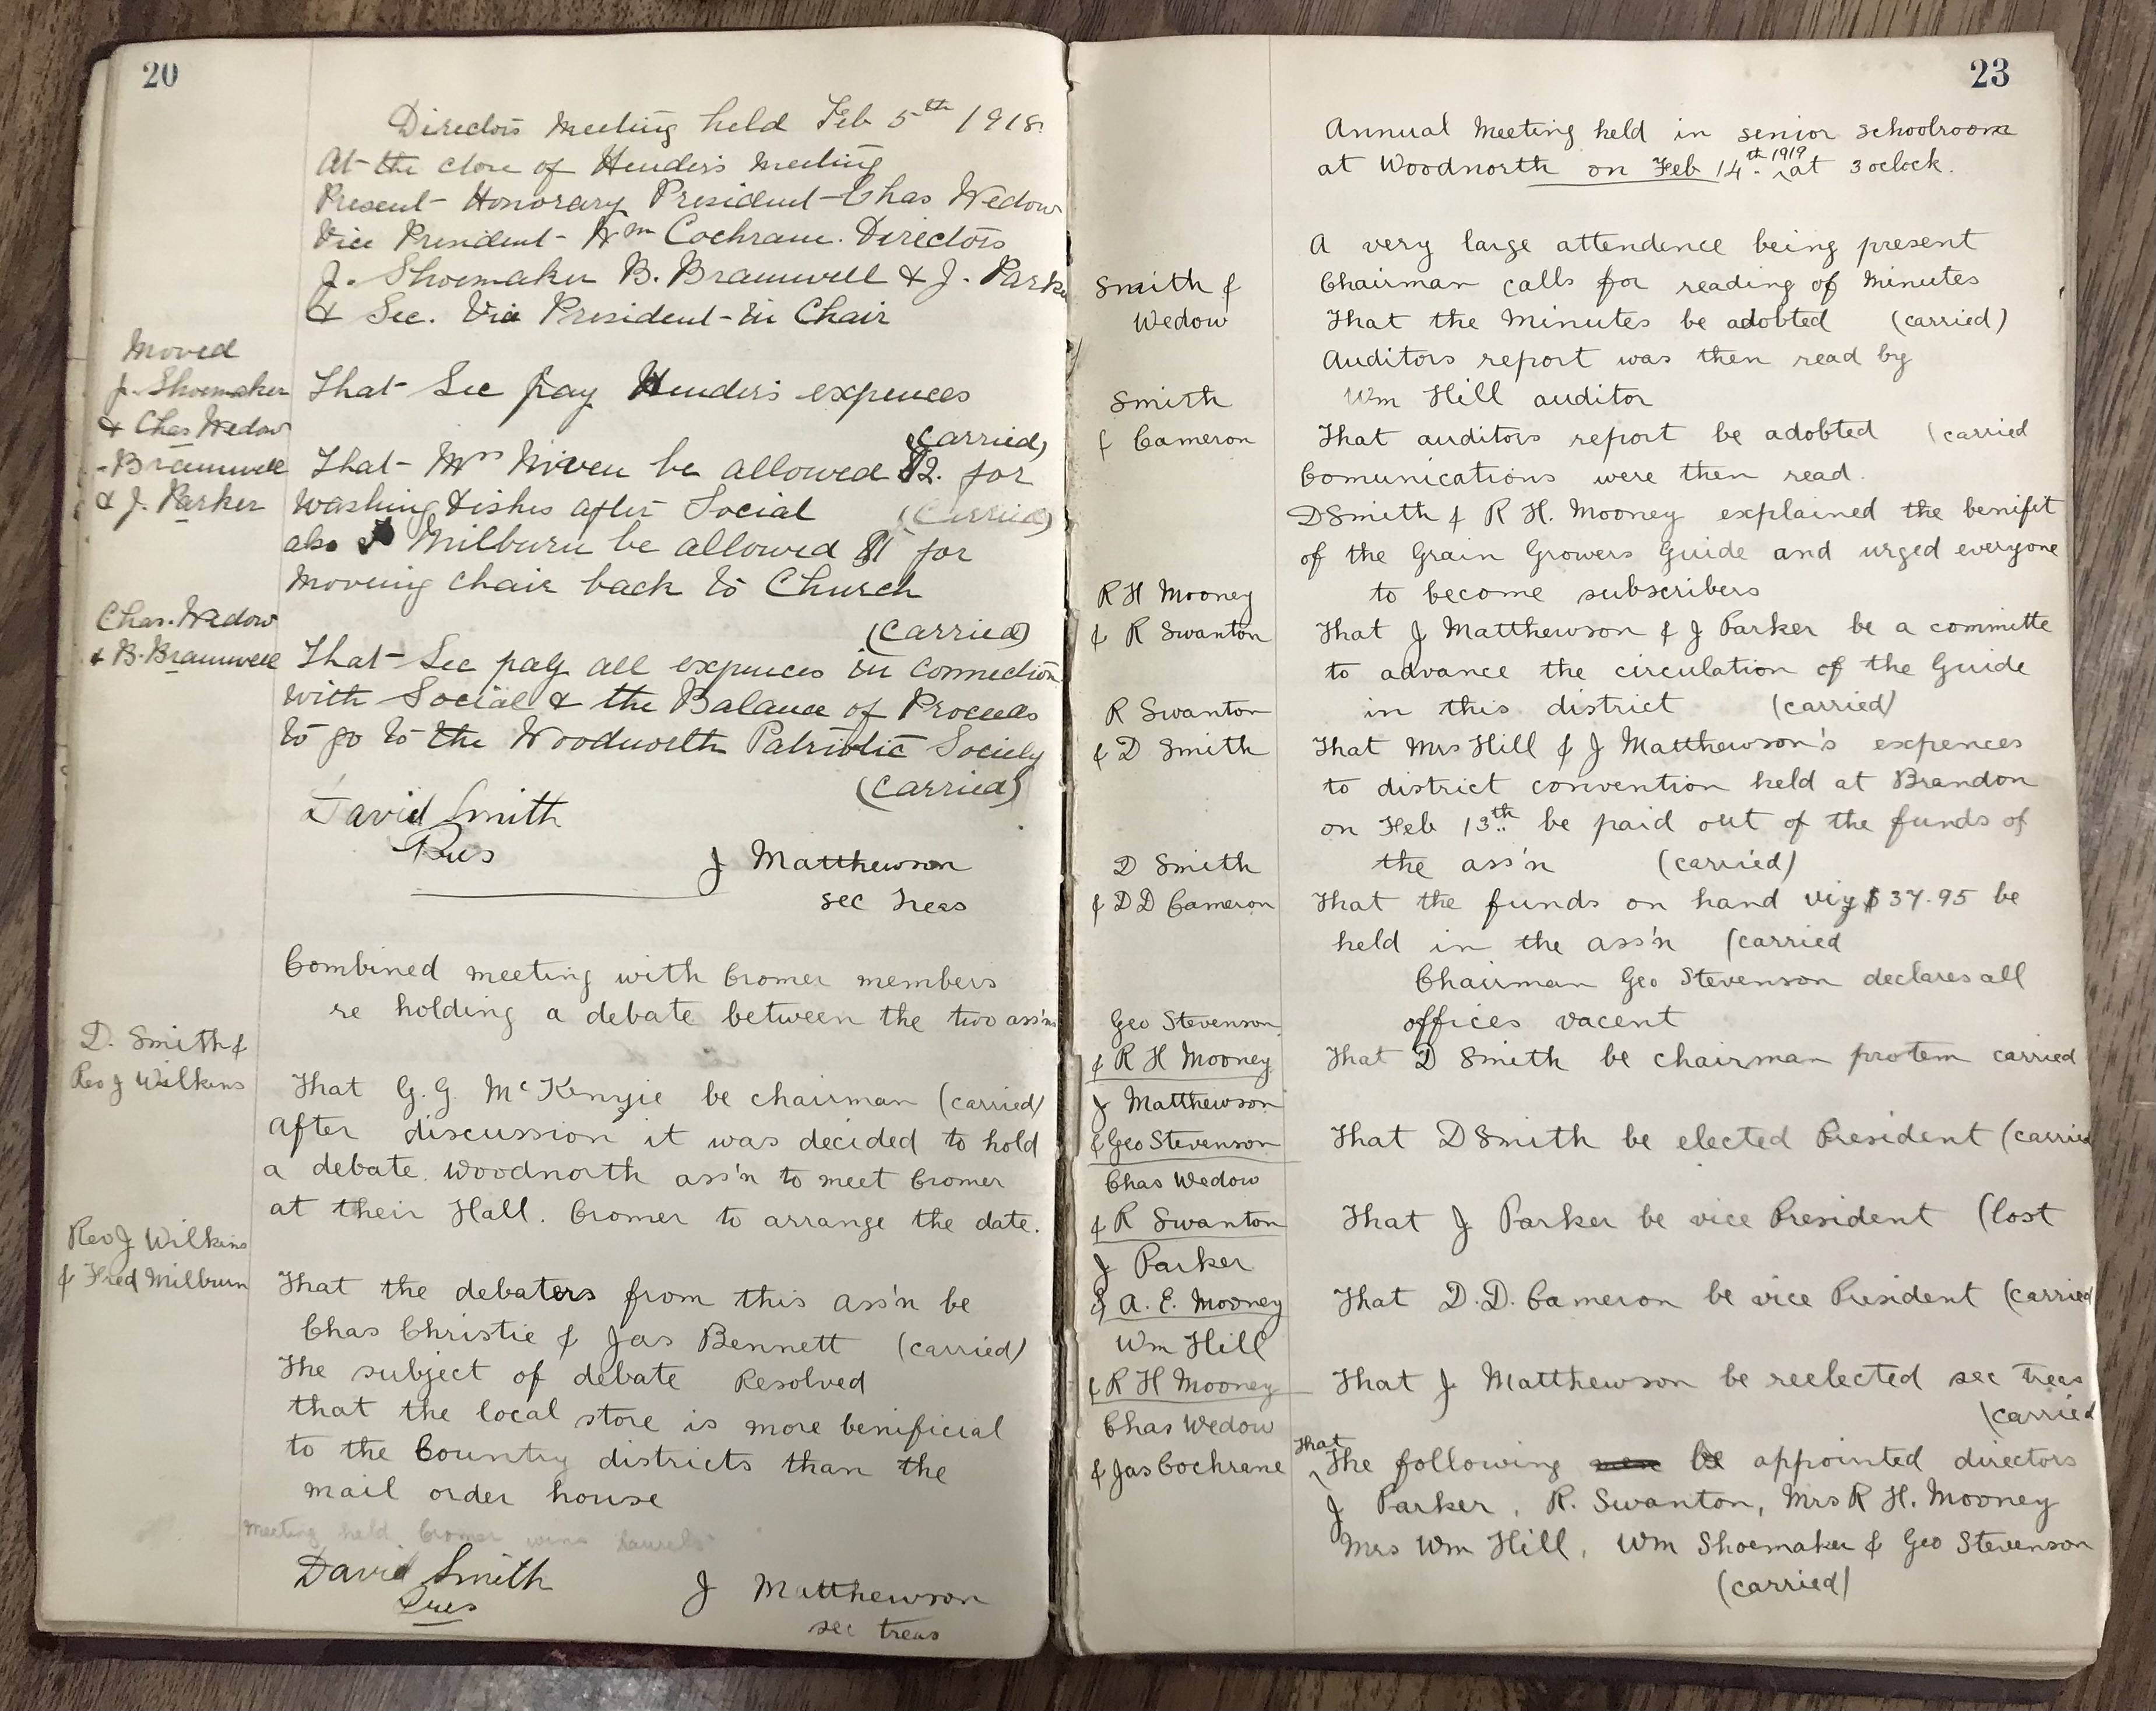 20
Directors Meeting held Feb 5th 1918.
At the close of Henders meeting
Present - Honorary President - Chas Wedow
Vice President - Wm Cochrane. Directors
J. Shoemaker B. Bramwell & J. Parker
& Sec. Vice President - in Chair
Moved
J. Shoemaker
& Chas Wedow
That Sec pay Henders expences
(Carried)
- Bramwell
& J. Parker
That - Mrs Niven be allowed $2. for
washing dishes after Social (Carried)
also Milburn be allowed $1 for
moveing chair back to Church
(Carried)
Chas. Wedow
& B. Bramwell
That - Sec pay all expences in connection
with Social & the Balance of Proceeds
to go to the Woodworth Patriotic Society
(Carried)
David Smith
Pres
J Matthewson
sec Treas
Combined meeting with Cromer members
re holding a debate between the two ass'ns
D. Smith &
Rev J Wilkins
That G. G. McKenzie be chairman (carried)
after discussion it was decided to hold
a debate. Woodnorth ass'n to meet Cromer
at their Hall. Cromer to arrange the date.
Rev J Wilkins
& Fred Milburn
That the debaters from this ass'n be
Chas Christie & Jas Bennett (carried)
The subject of debate Resolved
that the local store is more benificial
to the Country districts than the
mail order house
Meeting held. Cromer wins laurels
David Smith
Pres
J Matthewson
sec treas
23
Annual Meeting held in senior schoolroom
at Woodnorth on Feb 14th 1919 at 3 oclock.
A very large attendence being present
Chairman calls for reading of Minutes
Smith &
Wedow
That the Minutes be adobted (carried)
Auditors report was then read by
Wm Hill auditor
Smith
& Cameron
That auditors report be adobted (carried
Comunications were then read.
D Smith & R H. Mooney explained the benifit
of the Grain Growers Guide and urged everyone
to become subscribers
R H Mooney
& R Swanton
That J Matthewson & J Parker be a committe
to advance the circulation of the Guide
in this district (carried)
R Swanton
& D Smith
That Mrs Hill & J Matthewson's expences
to district convention held at Brandon
on Feb 13th be paid out of the funds of
the ass'n (carried)
D Smith
& D D Cameron
That the funds on hand viz $37.95 be
held in the ass'n (carried
Chairman Geo Stevenson declares all
offices vacent
Geo Stevenson
& R H Mooney
That D Smith be chairman protem carried
J Matthewson
& Geo Stevenson
That D Smith be elected President (carried
Chas Wedow
& R Swanton
That J Parker be vice President (lost
J Parker
& A. E. Mooney
That D.D. Cameron be vice President (carried
Wm Hill
& R H Mooney
That J Matthewson be reelected sec treas
(carried
Chas Wedow
& Jas Cochrane
That The following be appointed directors
J Parker, R. Swanton, Mrs R H. Mooney
Mrs Wm Hill, Wm Shoemaker & Geo Stevenson
(carried)